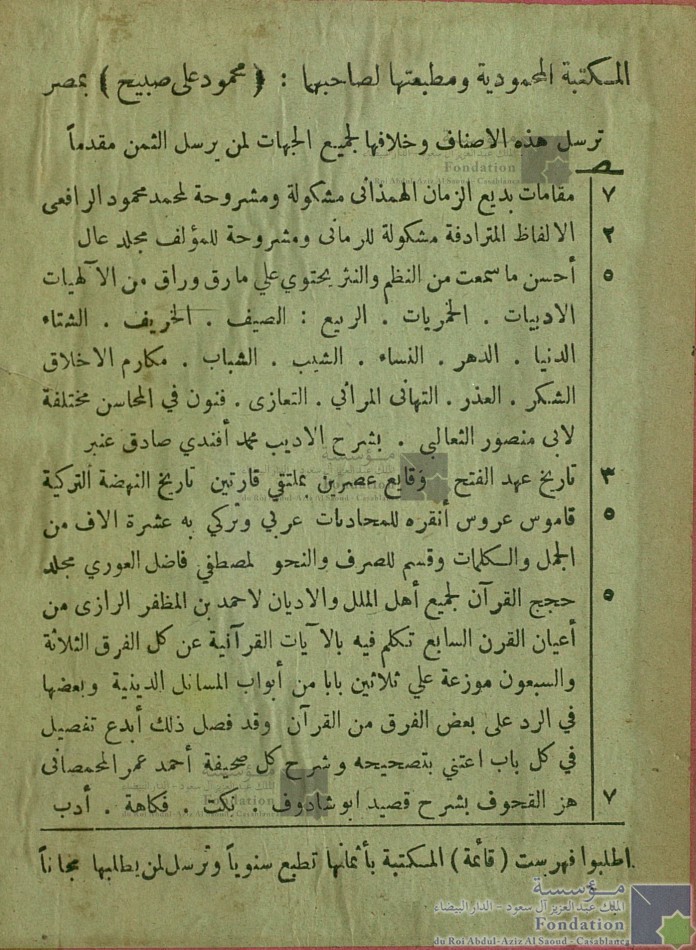 المكتبة المحمودية ومطبعتها لصاحبها : ( محمود على صبيح ) بمصر
ترسل هذه الاصناف وخلافها لجميع الجهات لمن يرسل الثمن مقدماً
٧ مقامات بديع الزمان الهمذانى مشكولة ومشروحة لمحمد محمود الرافعى
٢ الالفاظ المترادفة مشكولة للرمانى ومشروحة للمؤلف مجلد عال
٥ أحسن ما سمعت من النظم والنثر يحتوي علي مارق وراق من الآلهيات
الادبيات . الخمريات . الربيع : الصيف . الخريف . الشتاء
الدنيا . الدهر . النساء . الشيب . الشباب . مكارم الاخلاق
الشكر . العذر . التهانى المراثي . التعازى . فنون في المحاسن مختلفة
لابى منصور الثعالبى . بشرح الاديب محمد أفندي صادق عنبر
٣ تاريخ عهد الفتح وقايع عصرين بملتقي قارتين تاريخ النهضة التركية
٥ قاموس عروس أنقره للمحادثات عربي وتركي به عشرة الاف من
الجمل والكلمات وقسم للصرف والنحو لمصطفي فاضل العوري مجلد
٥ حجج القرآن لجميع أهل الملل والاديان لاحمد بن المظفر الرازى من
أعيان القرن السابع تكلم فيه بالآيات القرآنية عن كل الفرق الثلاثة
والسبعون موزعة علي ثلاثين بابا من أبواب المسائل الدينية وبعضها
في الرد على بعض الفرق من القرآن وقد فصل ذلك أبدع تفصيل
في كل باب اعتني بتصحيحه وشرح كل صحيفة أحمد عمر المحمصانى
٧ هز القحوف بشرح قصيد ابو شادوف . نكت . فكاهة . أدب
اطلبوا فهرست ( قائمة ) المكتبة بأثمانها تطبع سنوياً وترسل لمن يطلبها مجاناً
مؤسسة
الملك عبد العزيز آل سعود - الدار البيضاء
Fondation
du Roi Abdul-Aziz Al Saoud - Casablanca